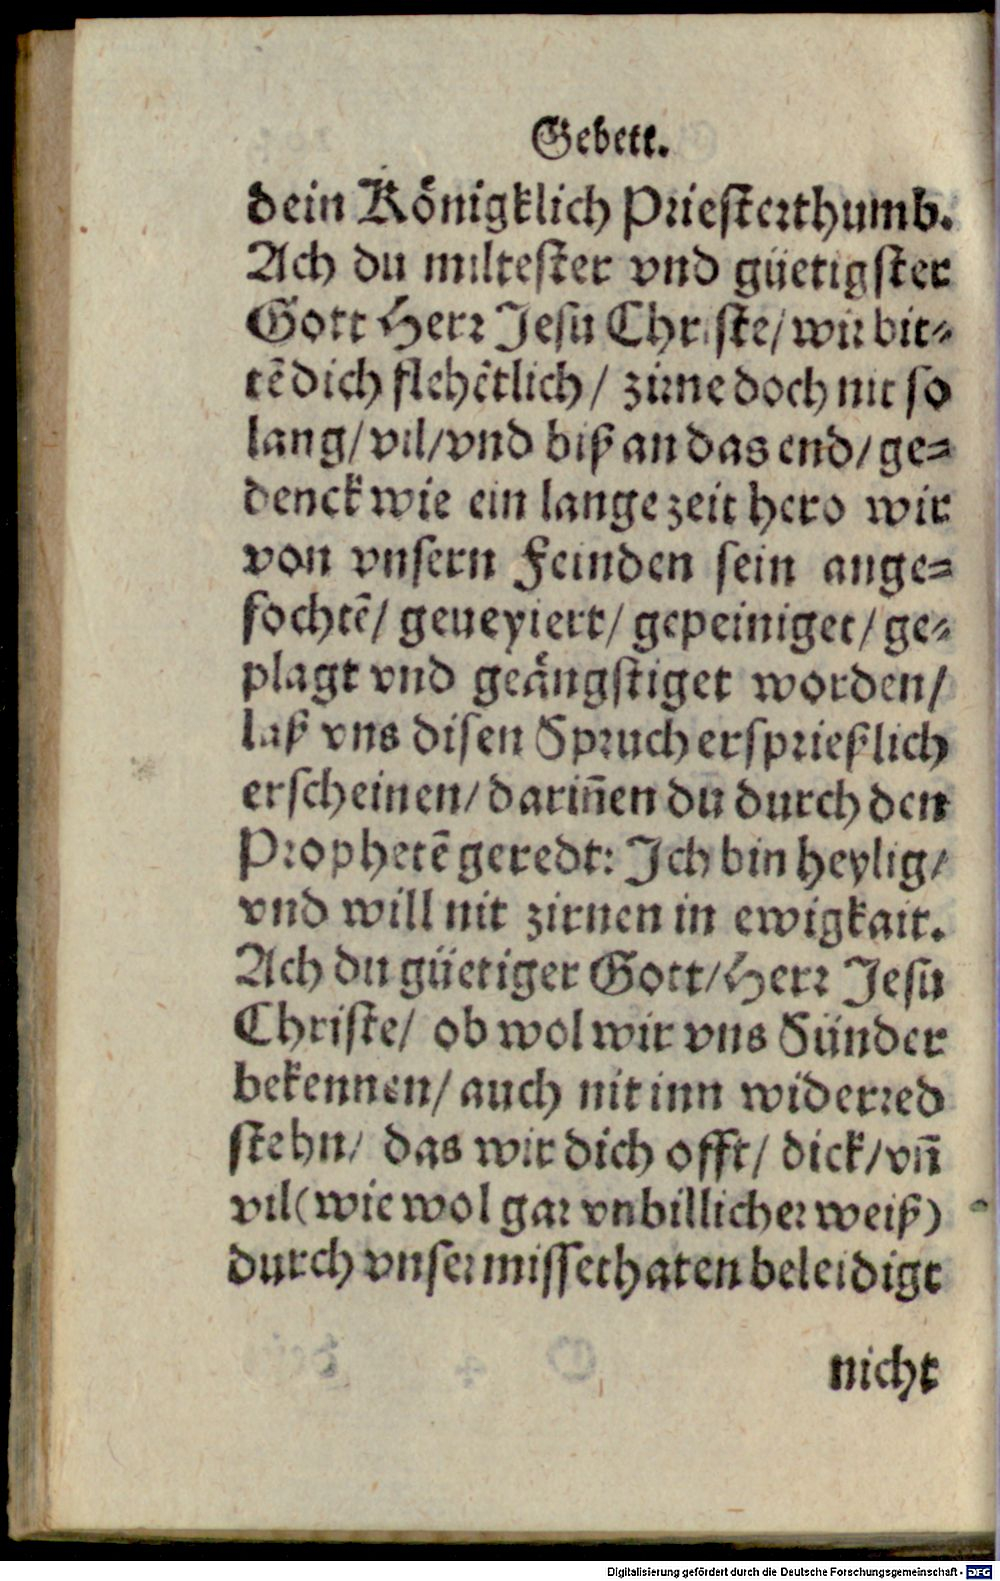 Gebett.
dein Königklich Priesterthumb.
Ach du miltester vnd güetigster
Gott Herr Jesu Christe/ wir bit-
tẽ dich flehẽtlich/ zürne doch nit so
lang/ vil/ vnd biß an das end/ ge-
denck wie ein lange zeit hero wir
von vnsern Feinden sein ange-
fochtẽ/ geueyiert/ gepeiniget/ ge-
plagt vnd geängstiget worden/
laß vns disen Spruch ersprießlich
erscheinen/ darinñen du durch den
Prophetẽ geredt: Ich bin heylig/
vnd will nit zirnen in ewigkait.
Ach du güetiger Gott/ Herr Jesu
Christe/ ob wol wir vns Sünder
bekennen/ auch nit inn widerred
stehn/ das wir dich offt/ dick/ vñ
vil (wie wol gar vnbillicher weiß)
durch vnser missethaten beleidigt
nicht
Digitalisierung gefördert durch die Deutsche Forschungsgemeinschaft - DFG